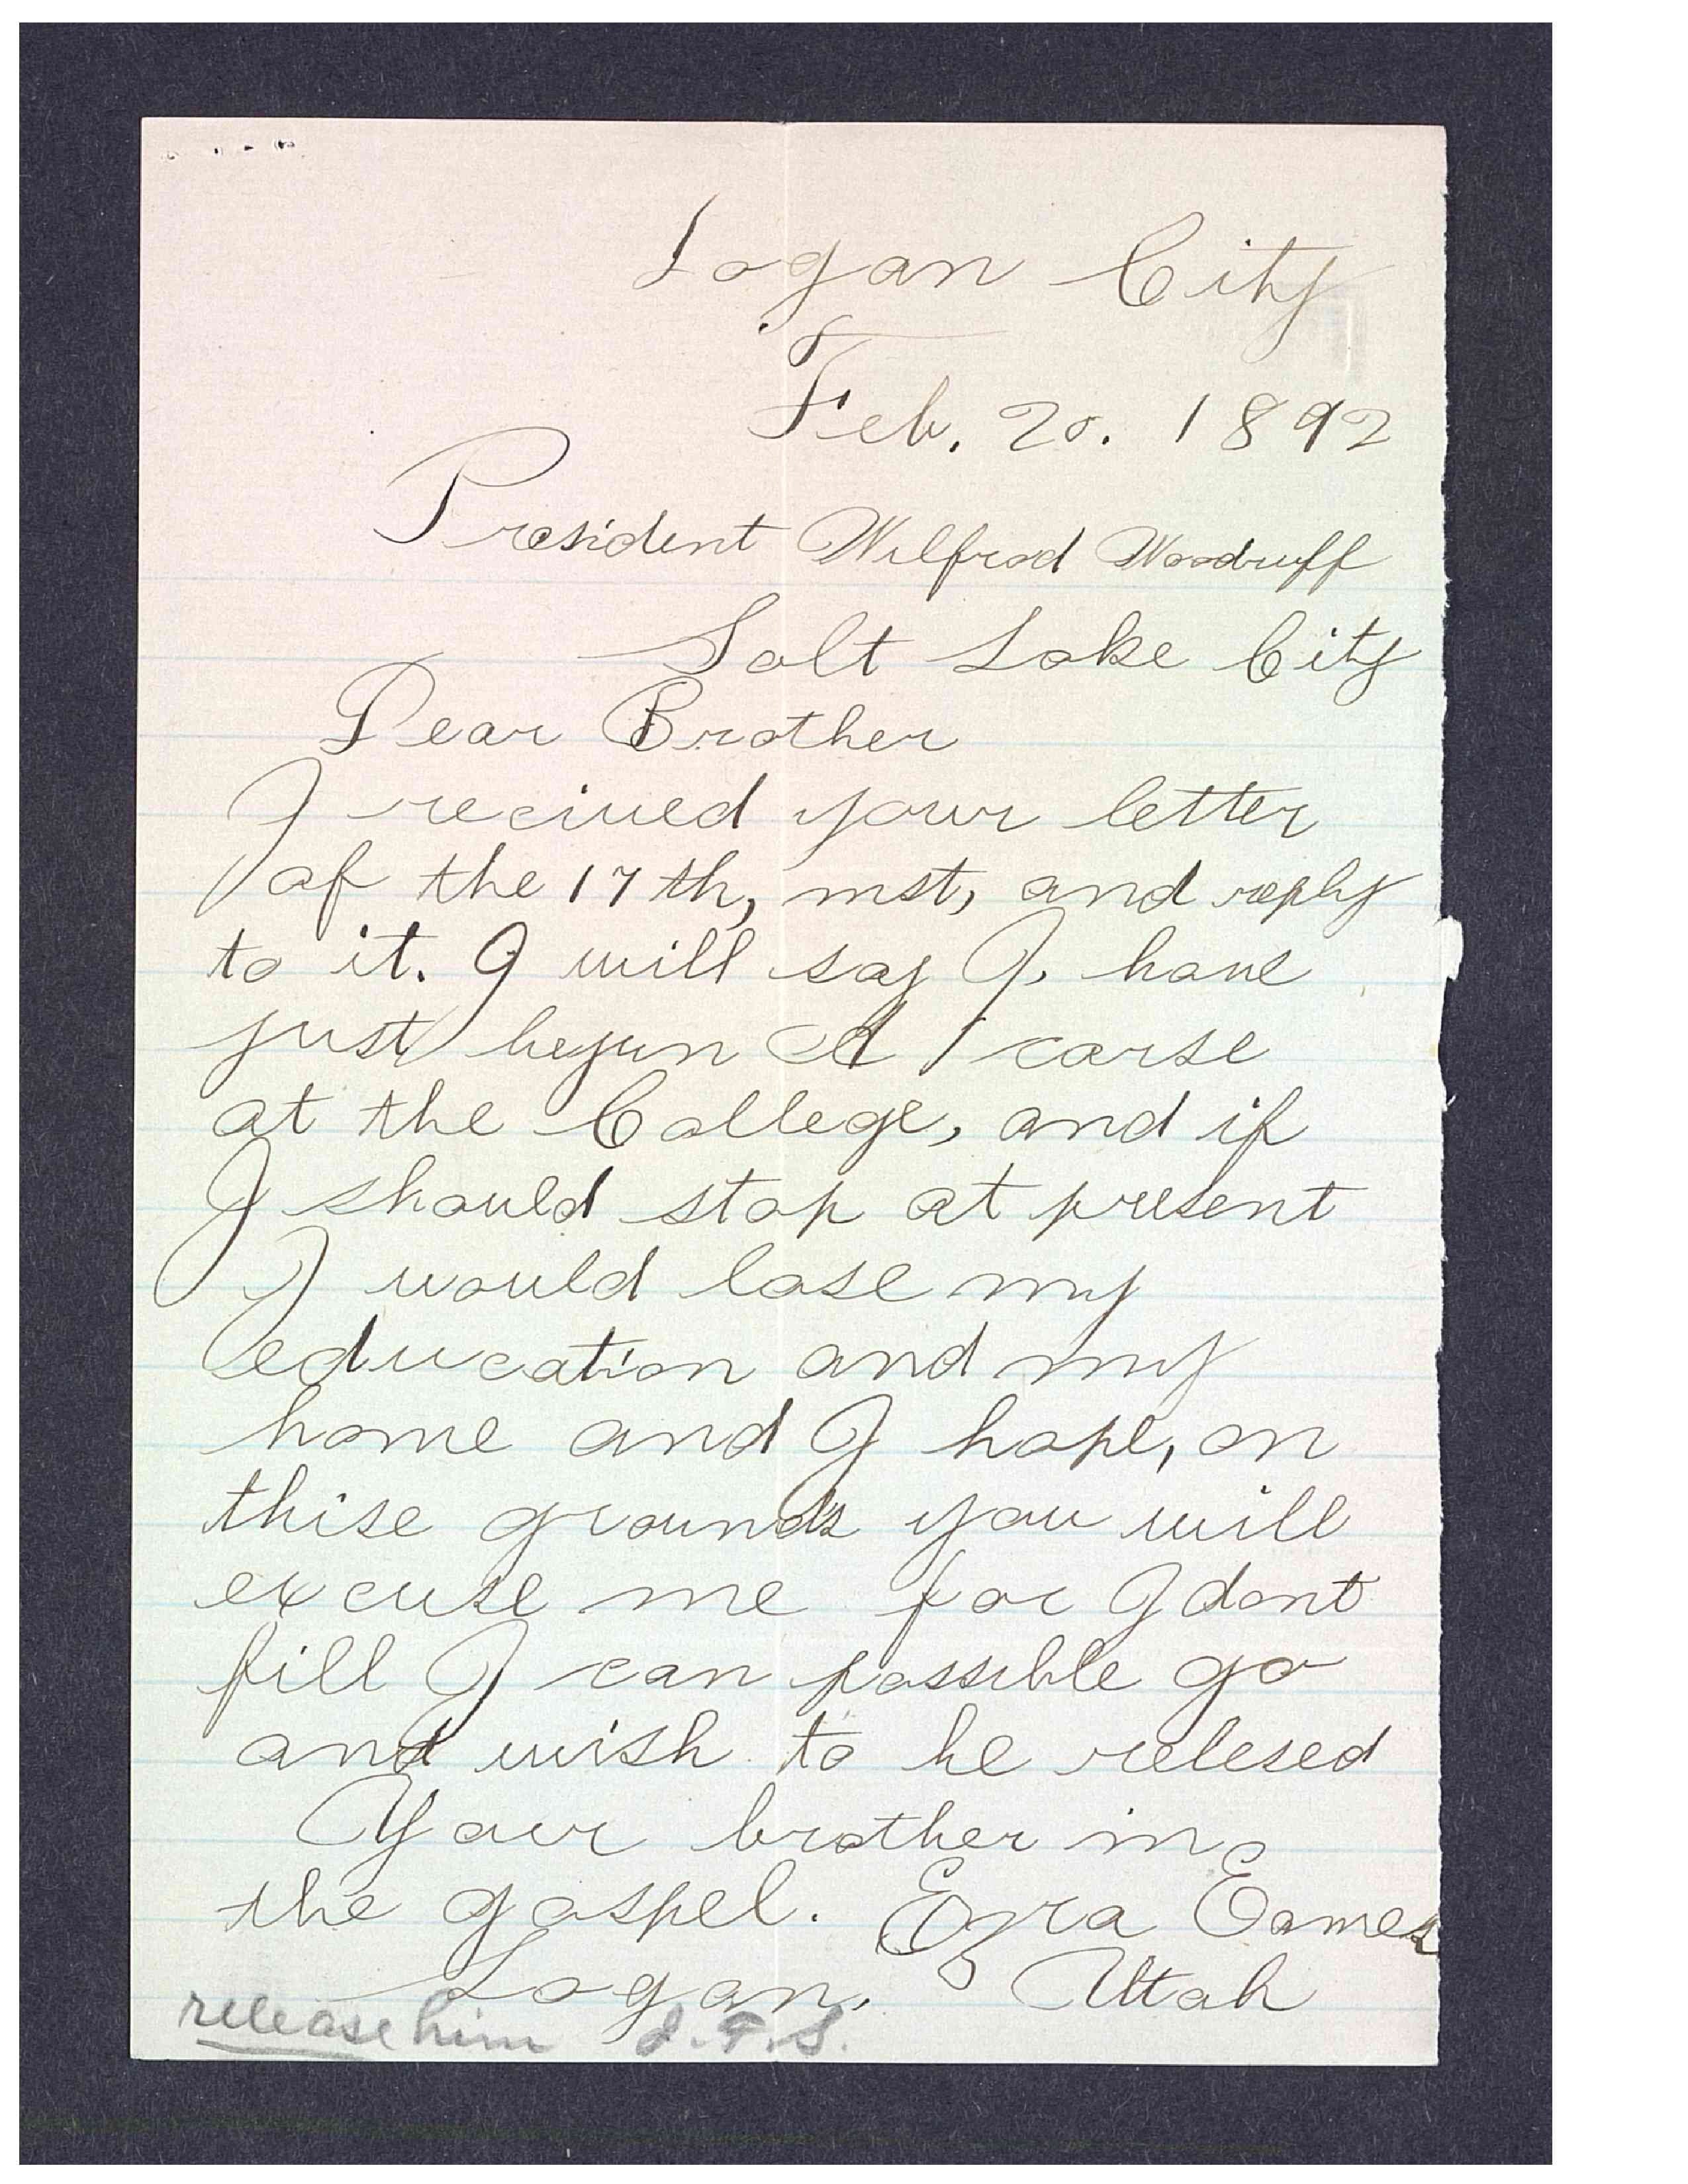 Logan City
Feb. 20. 1892
President Wilfrod Woodruff
Salt Lake City
Dear Brother
I recived your letter
of the 17th, inst, and reply
to it. I will say I have
just begun A corse
at the College, and if
I should stop at present
I would lose my
education and my
home and I hope, on
thise grounds you will
excuse me for I dont
fill I can possible go
and wish to be relesed
Your brother in
the gospel. Ezra Eames
Logan, Utah
release him J.F.S.